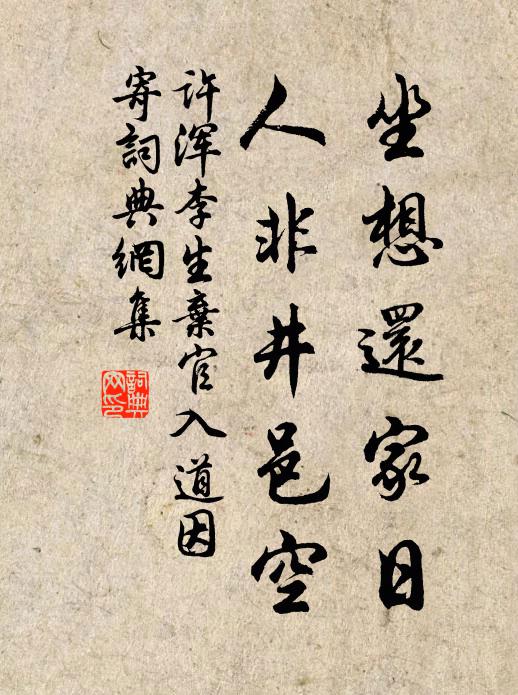 坐想還家日
人非井邑空
许渾李生棄官入道因
寄詞典網集
詞典
网印